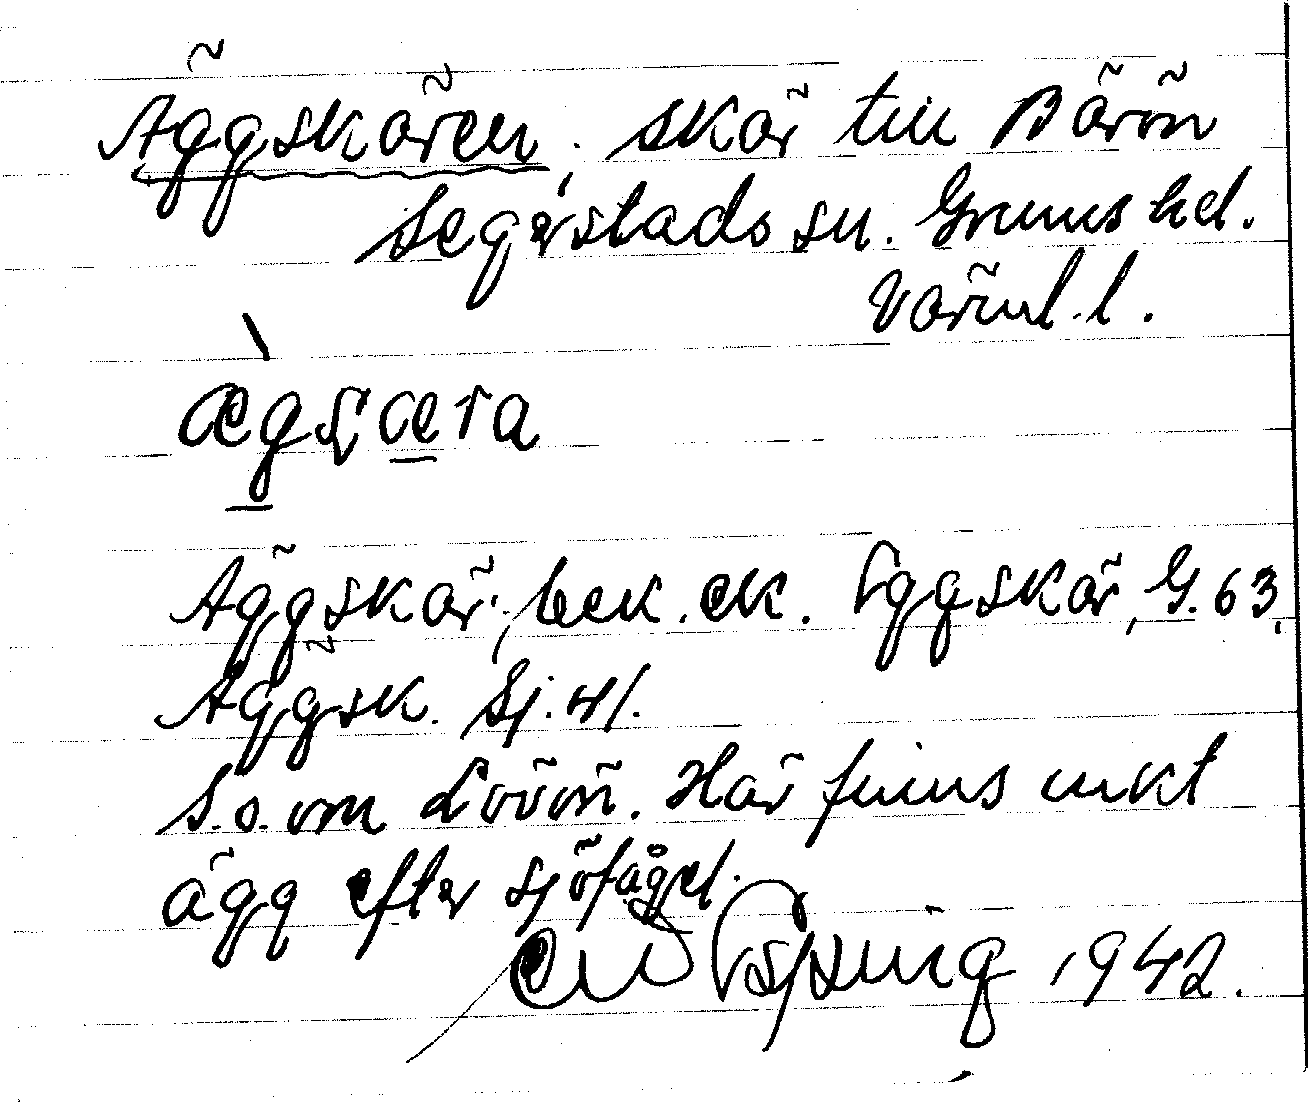 Äggskären, skär till Bärön
Segerstads sn. Grums hd.
Värml. l.
ægʂæra
Äggskär, bek. ek. Eggskär, G. 63,
Äggsk. Sj. 41.
S.o. om Lövön. Här finns mkt
ägg efter sjöfågel.
Esping 1942.